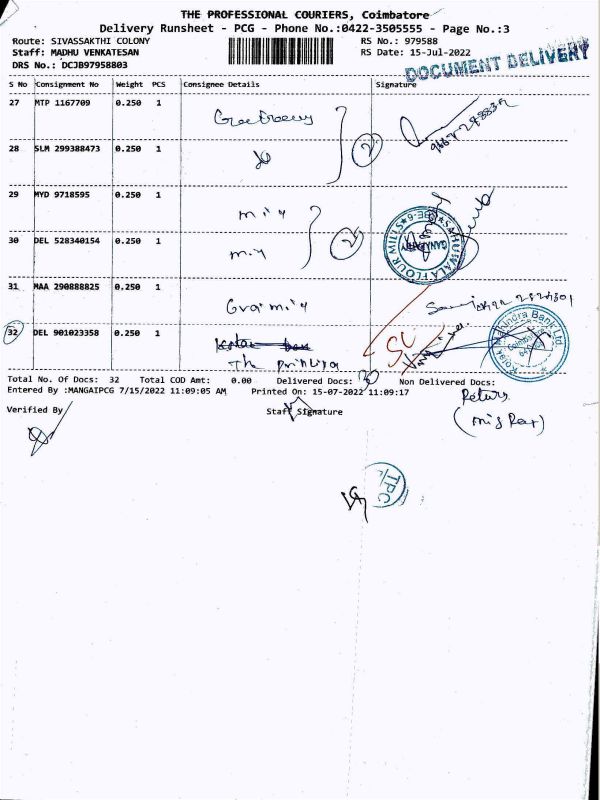 THE PROFESSIONAL COURIERS, Coimbatore
Delivery Runsheet - PCG - Phone No.:0422-3505555 - Page No.:3
Route: SIVASSAKTHI COLONY RS No.: 979588
Staff: MADHU VENKATESAN RS Date: 15-Jul-2022
DRS No.: DCJB97958803
DOCUMENT DELIVERY
S No Consignment No Weight PCS Consignee Details Signature
27 MTP 1167709 0.250 1
28 SLM 299388473 0.250 1
2
29 MYD 9718595 0.250 1
30 DEL 528340154 0.250 1
2
SAHUWALA FLOUR MILLS
31 MAA 290888825 0.250 1
32 DEL 901023358 0.250 1
Kotak Mahindra Bank Ltd.
Total No. Of Docs: 32 Total COD Amt: 0.00 Delivered Docs: 30 Non Delivered Docs:
Entered By :MANGAIPCG 7/15/2022 11:09:05 AM Printed On: 15-07-2022 11:09:17
Return
Verified By Staff Signature
TPC